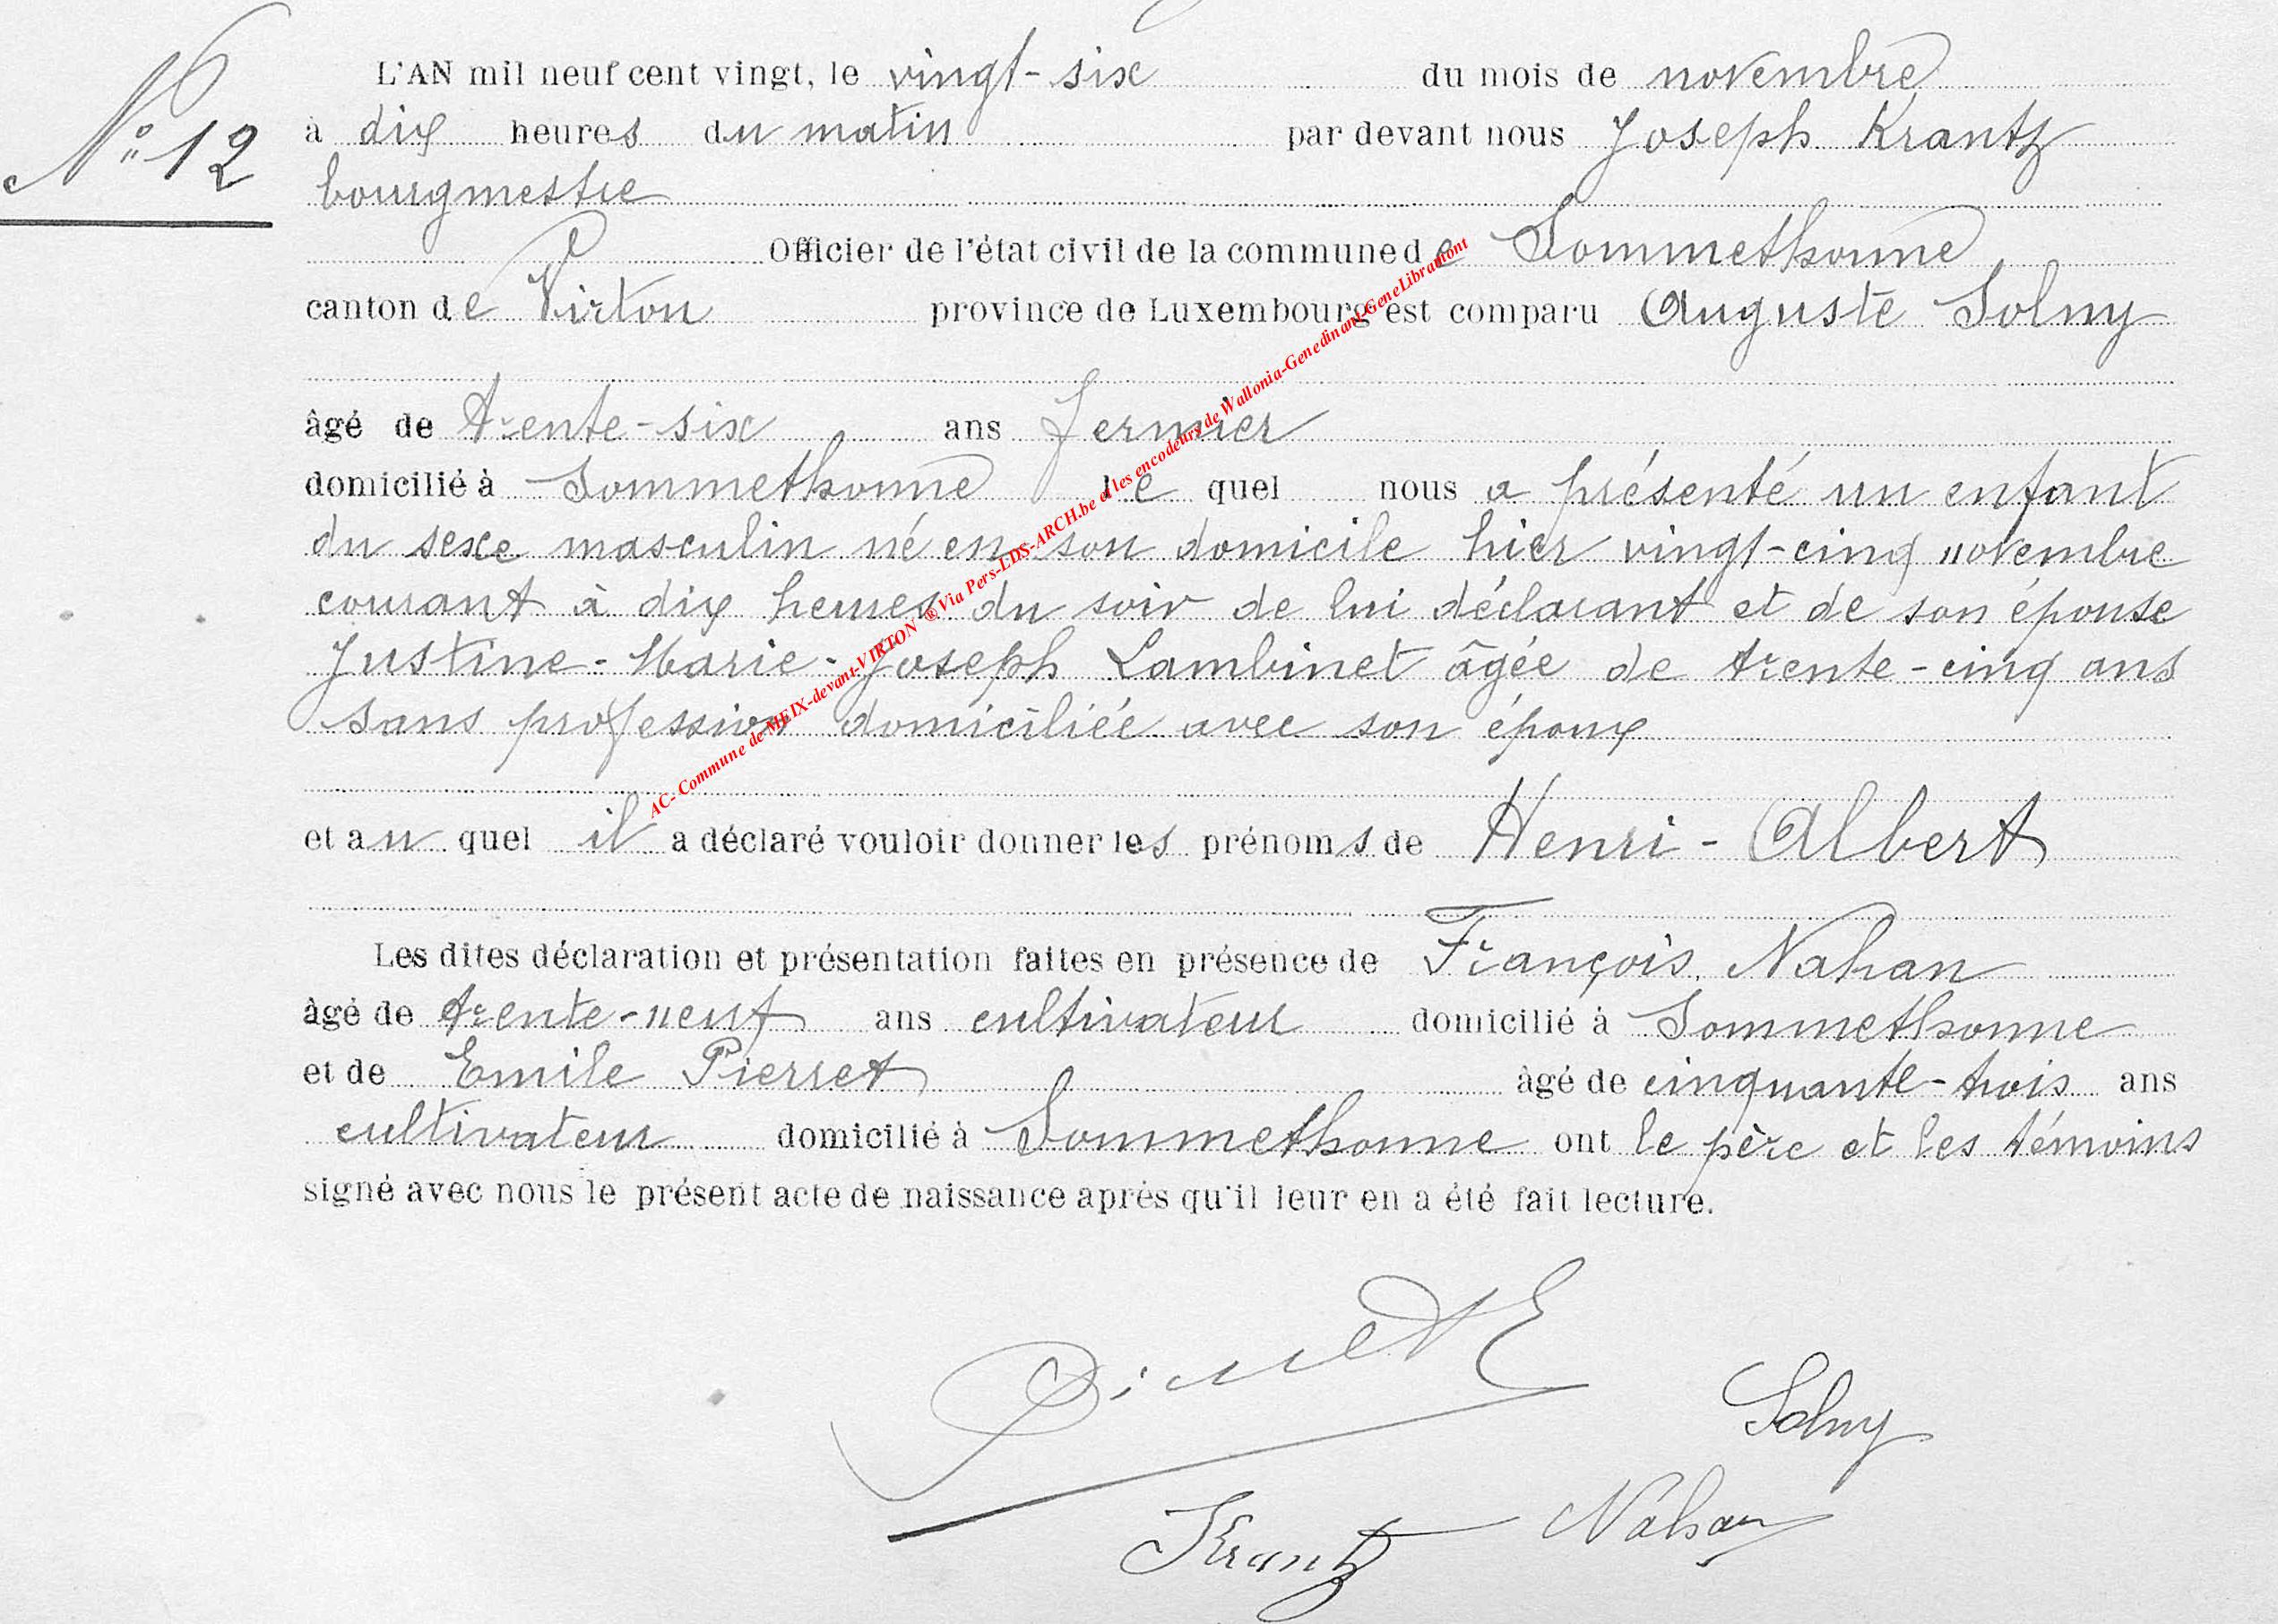 L'AN mil neuf cent vingt, le vingt-six du mois de novembre
N° 12
à dix heures du matin par devant nous Joseph Krantz
bourgmestre
Officier de l'état civil de la commune de Sommethonne
canton de Virton province de Luxembourg est comparu Auguste Solmy
âgé de trente-six ans fermier
domicilié à Sommethonne lequel nous a présenté un enfant
du sexe masculin né en son domicile hier vingt-cinq novembre
courant à dix heures du soir de lui déclarant et de son épouse
Justine-Marie-Joseph Lambinet âgée de trente-cinq ans
sans profession domiciliée avec son époux
et au quel il a déclaré vouloir donner les prénoms de Henri-Albert
Les dites déclaration et présentation faites en présence de François Nahan
âgé de trente-neuf ans cultivateur domicilié à Sommethonne
et de Emile Pierret âgé de cinquante-trois ans
cultivateur domicilié à Sommethonne ont le père et les témoins
signé avec nous le présent acte de naissance après qu'il leur en a été fait lecture.
Pierret E
Solmy
Krantz Nahan
AC- Commune de MEIX-devant-VIRTON ® Via Pers-LDS-ARCH.be et les encodeurs de Wallonia-Genedinant-GeneLibramont